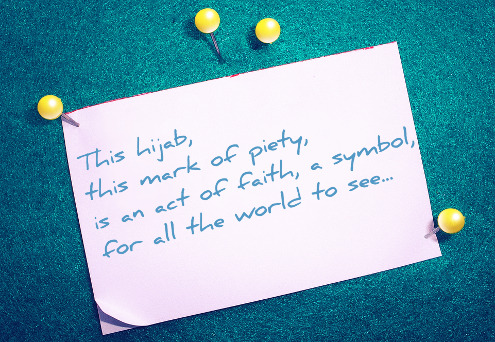 This hijab,
this mark of piety,
is an act of faith, a symbol,
for all the world to see...